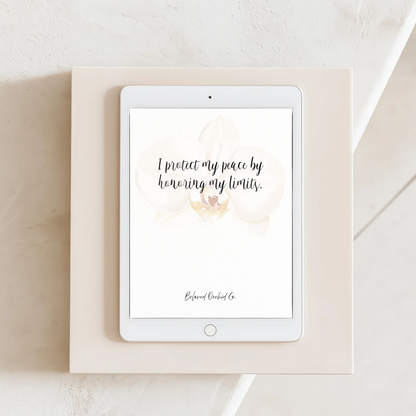 I protect my peace by
honoring my limits.
Beloved Orchid Co.